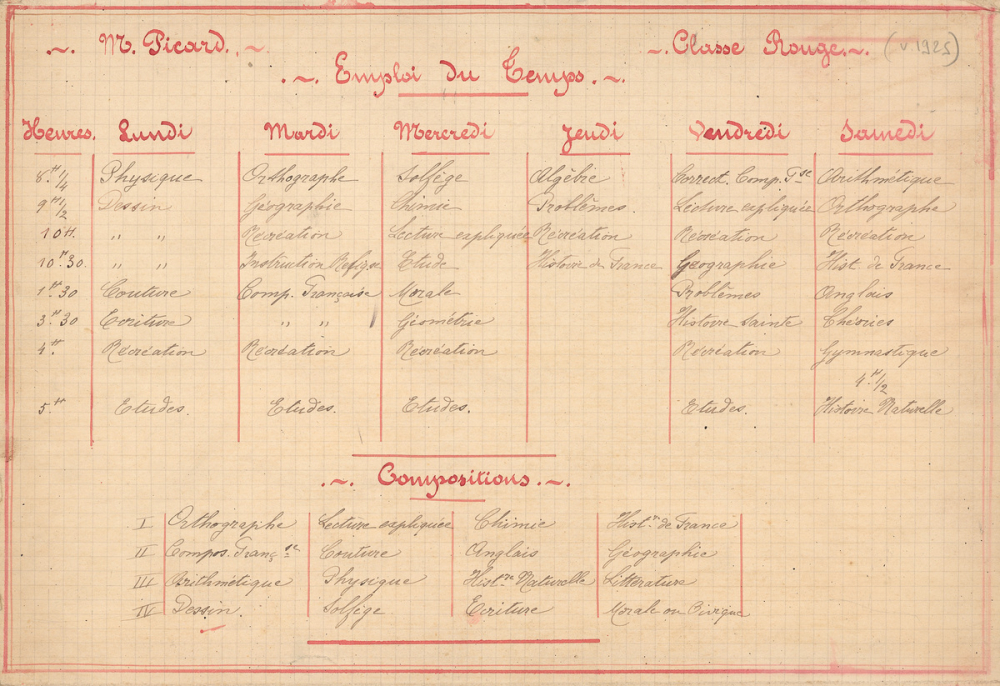 M. Picard. Classe Rouge. (v 1925)
Emploi du Temps.
Heures. Lundi Mardi Mercredi Jeudi Vendredi Samedi
8.H 1/4 Physique Orthographe Solfège Algèbre Correct. Comp. Fse Arithmétique
9H 1/2 Dessin Géographie Chimie Problèmes. Lecture expliquée Orthographe
10H. " " Récréation Lecture expliquée Récréation Récréation Récréation
10H30. " " Instruction Religse Etude Histoire de France Géographie Hist. de France
1H30 Couture Comp. Française Morale Problèmes Anglais
3H30 Ecriture " " Géométrie Histoire Sainte Théories
4H. Récréation Récréation Récréation Récréation Gymnastique
4.H 1/2
5.H Etudes. Etudes. Etudes. Etudes. Histoire Naturelle
Compositions.
I Orthographe Lecture expliquée Chimie Histre de France
II Compos. Françse Couture Anglais Géographie
III Arithmétique Physique Histre Naturelle Littérature
IV Dessin. Solfège Ecriture Morale ou Civique